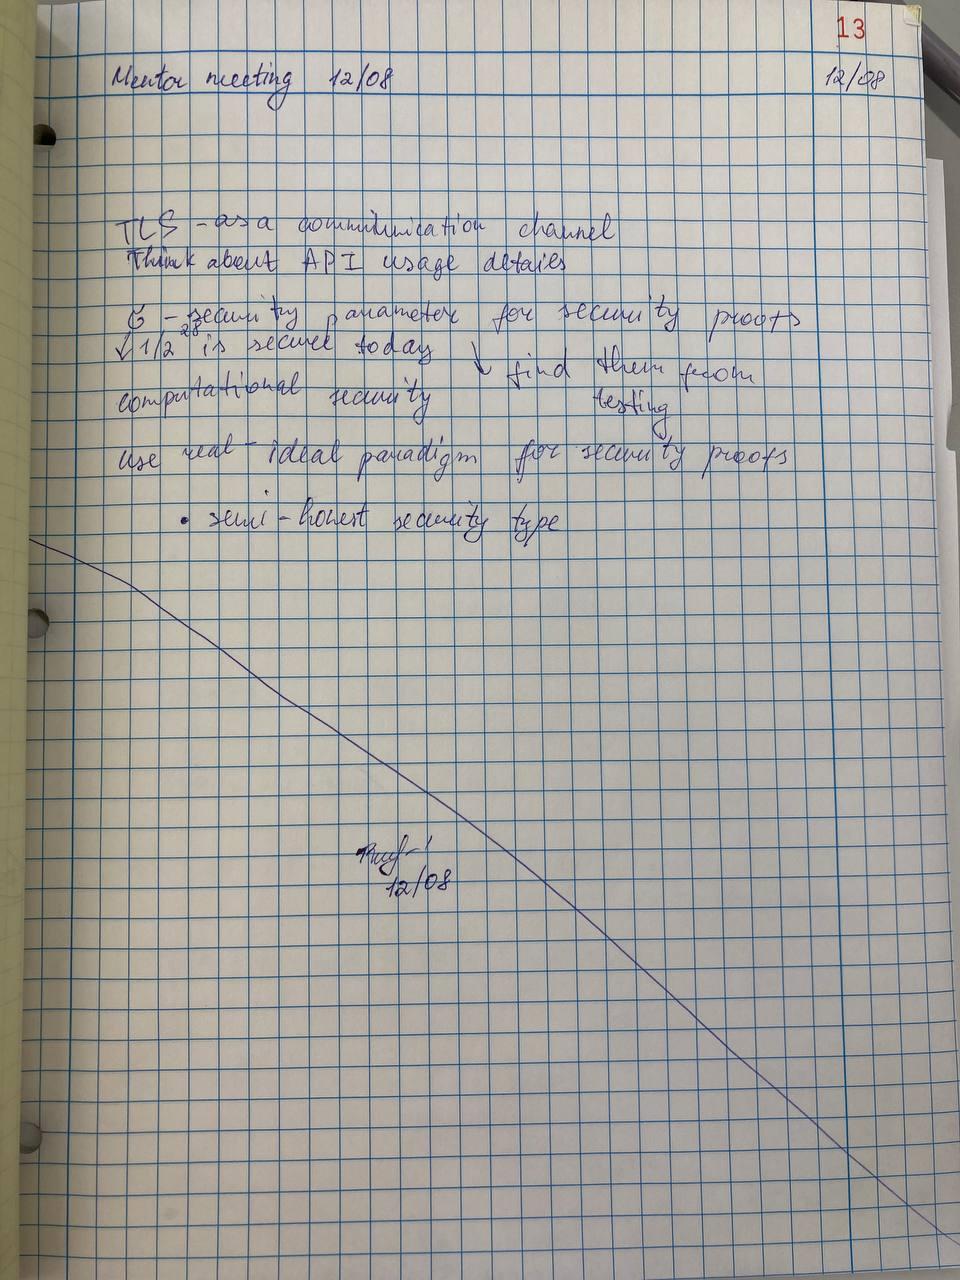 13
Mentor meeting 12/08 12/08
TLS - as a communication channel
Think about API usage details
σ - security parameter for security proofs
↓ 1/2²⁸ is secure today ↓ find them from
computational security testing
use real-ideal paradigm for security proofs
• semi-honest security type
12/08